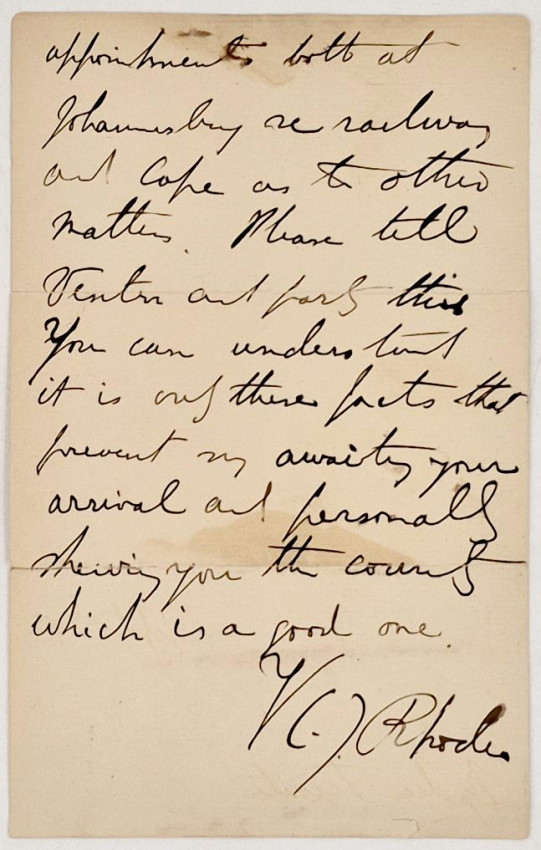 appointments both at
Johannesburg re railway
and Cape as to other
matters. Please tell
Venter and party this
You can understand
it is only these facts that
prevent my awaiting your
arrival and personally
shewing you the country
which is a good one.
Y C. J. Rhodes